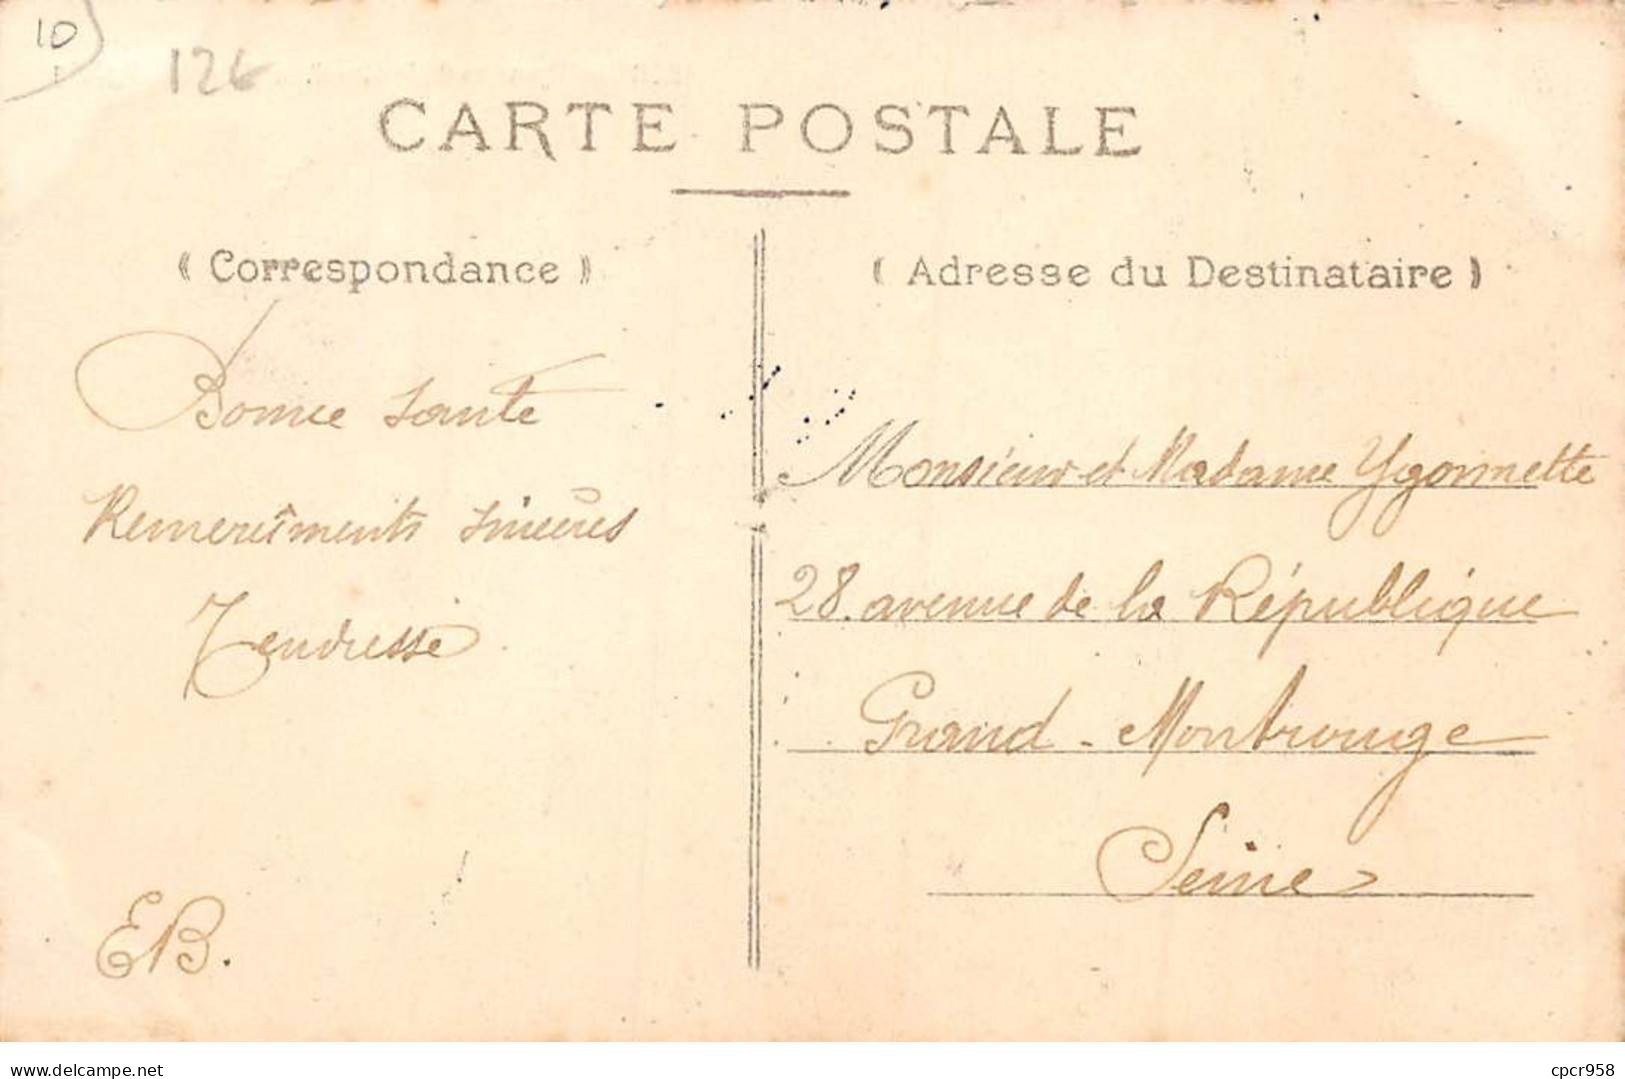 10
126
CARTE POSTALE
( Correspondance )
( Adresse du Destinataire )
Bonne santé
Remerciments sincères
Tendresse
EB.
Monsieur et Madame Ygonnette
28. avenue de la République
Grand - Montrouge
Seine
www.delcampe.net
cpcr958